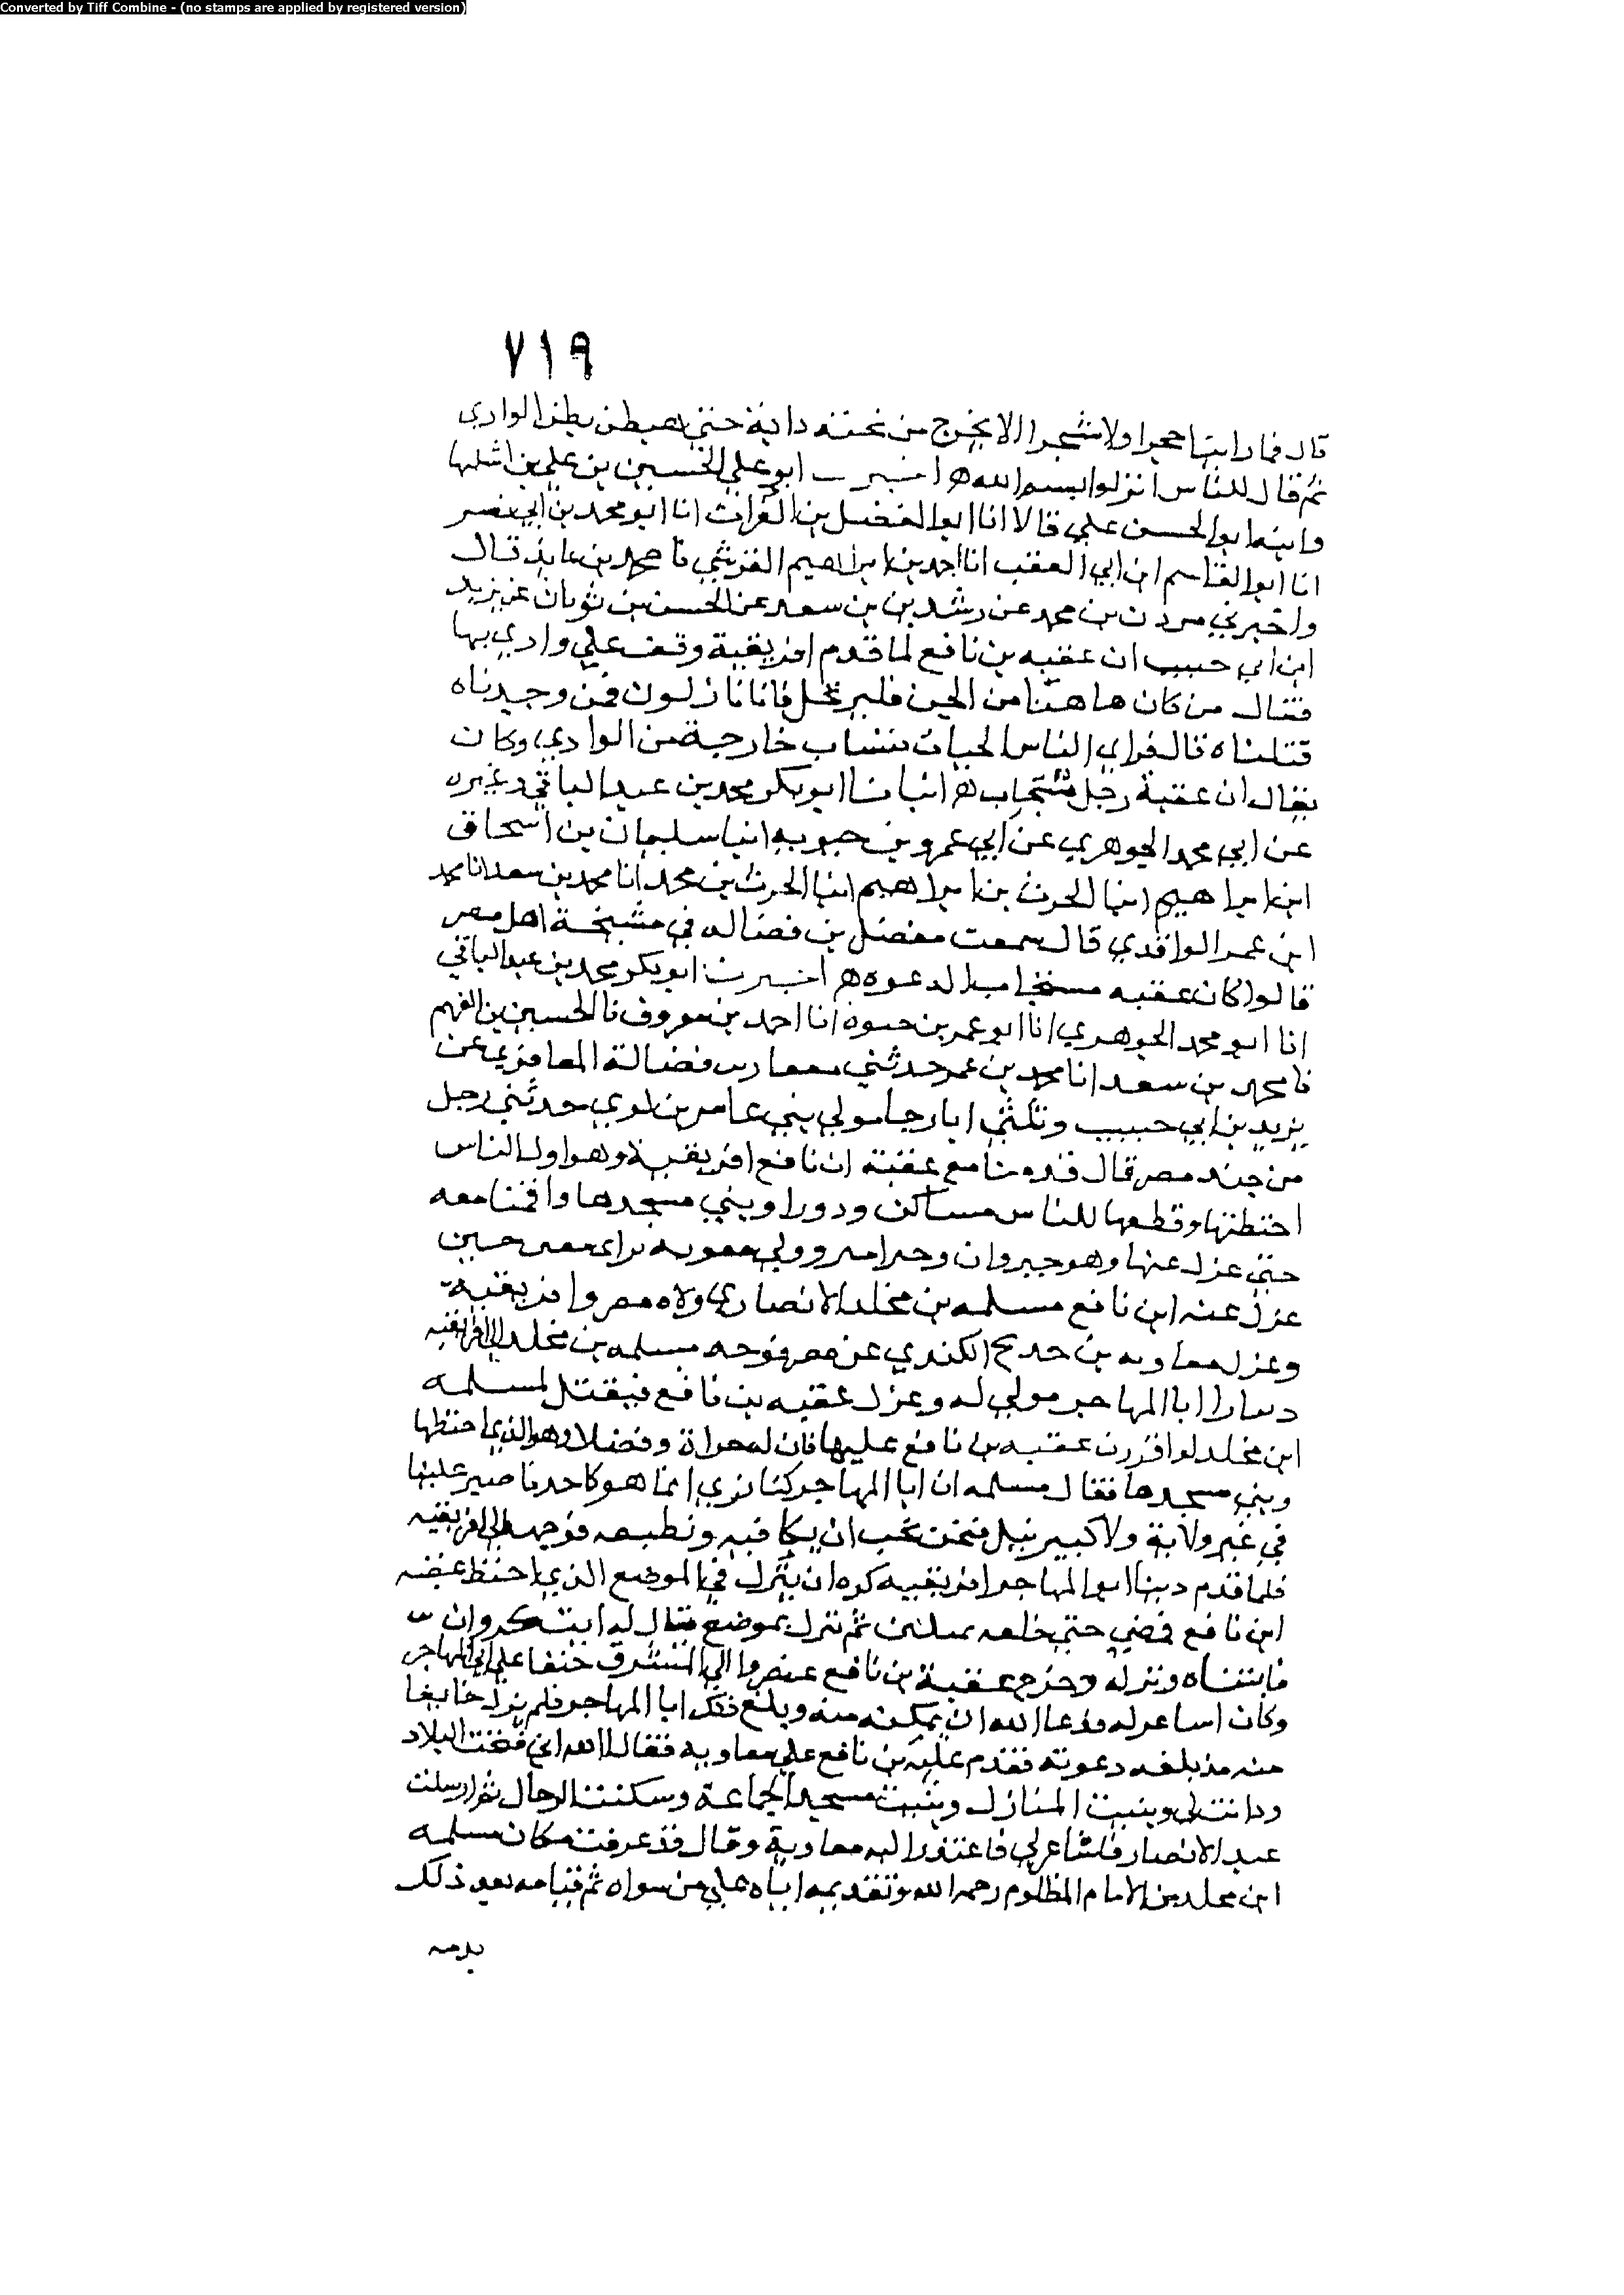 Converted by Tiff Combine - (no stamps are applied by registered version)
٧١٩
قال فما راينا حجرا ولا شجرا الا يخرج من تحته دابة حتى هبطن بطن الوادي
ثم قال للناس انزلوا بسم الله ه اخبرنا ابو علي الحسين بن علي بن اشليها
وابنه ابو الحسن علي قالا انا ابو الفضل بن الفرات انا ابو محمد بن ابي نصر
انا ابو القاسم ابن ابي العقب انا احمد بن ابراهيم القرشي نا محمد بن عايذ قال
واخبرني بن محمد عن رشدين بن سعد عن الحسن بن ثوبان عن يزيد
ابن ابي حبيب ان عقبه بن نافع لما قدم افريقية وقف علي وادي بها
فقال من كان هاهنا من الجن فليرتحل فانا نازلون فمن وجدناه
قتلناه قال فراي الناس الحيات تنساب خارجة من الوادي وكان
يقال ان عقبة رجل مستجاب ه انبانا ابو بكر محمد بن عبد الباقي وغيره
عن ابي محمد الجوهري عن ابي عمرو بن حيويه انبا سليمان بن اسحاق
ابن ابراهيم انبا الحرث بن ابراهيم انبا الحرث بن محمد انا محمد بن سعد انا محمد
ابن عمر الواقدي قال سمعت مفضل بن فضاله في مشيخة اهل مصر
قالوا كان عقبه مستجاب الدعوه ه اخبرنا ابو بكر محمد بن عبد الباقي
انا ابو محمد الجوهري انا ابو عمر بن حيوه انا احمد بن معروف نا الحسين بن الفهم
نا محمد بن سعد انا محمد بن عمر حدثني فضالة المعافري عن
يزيد بن ابي حبيب مولي بني عامر بن لوي حدثني رجل
من جند مصر قال قدمنا مع عقبة ابن نافع افريقية وهو اول الناس
اختطها وقطعها للناس مساكن ودورا وبني مسجدها واقمنا معه
حتى عزل عنها وهو خير وال وخير امير وولي معويه حين
عزل عنه ابن نافع مسلمه بن مخلد الانصاري ولاه مصر وافريقية
وعزل معاويه بن حديج الكندي عن مصر فوجه مسلمه بن مخلد الى افريقيه
دينارا ابا المهاجر مولي له وعزل عقبه بن نافع فيقتل لمسلمه
ابن مخلد لو اقررت عقبه بن نافع عليها فان له جراة وفضلا وهو الذي اختطها
وبني مسجدها فقال مسلمه ان ابا المهاجر كنا نري انما هو كاحدنا صير علينا
في غير ولاية ولا كبير نيل فنحن نحب ان يكافيه ونطيعه فوجهه الى افريقيه
فلما قدم دينار ابو المهاجر افريقيه كره ان ينزل في الموضع الذي اختطه عقبه
ابن نافع فمضي حتى خلفه بميلين ثم نزل بموضع يقال له ابت كروان
فابتناه ونزله وخرج عقبة بن نافع منصرفا الى المشرق حنقا علي ابي المهاجر
وكان اسا عزله فدعا الله ان يمكنه منه وبلغ ذلك ابا المهاجر فلم يزل خايفا
منه مذ بلغه دعوته فقدم عقبة بن نافع علي معاويه فقال الله اني فتحت البلاد
ودانت لي وبنيت المنازل وبنيت مسجد الجماعة وسكنت الرجال ثم ارسلت
عبد الانصار فاسا عزلي فاعتذر اليه معاوية وقال قد عرفت مكان مسلمه
ابن مخلد من الامام المظلوم رحمه الله وتقديمه اياه علي من سواه ثم قيامه بعد ذلك
بدمه